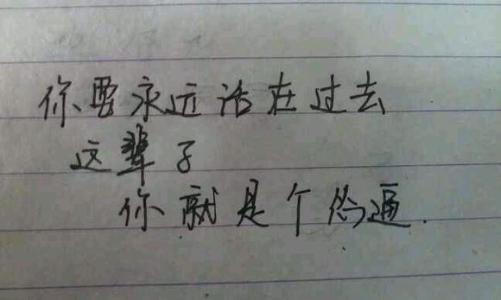 你要永远活在过去
这辈子
你就是个饭通.